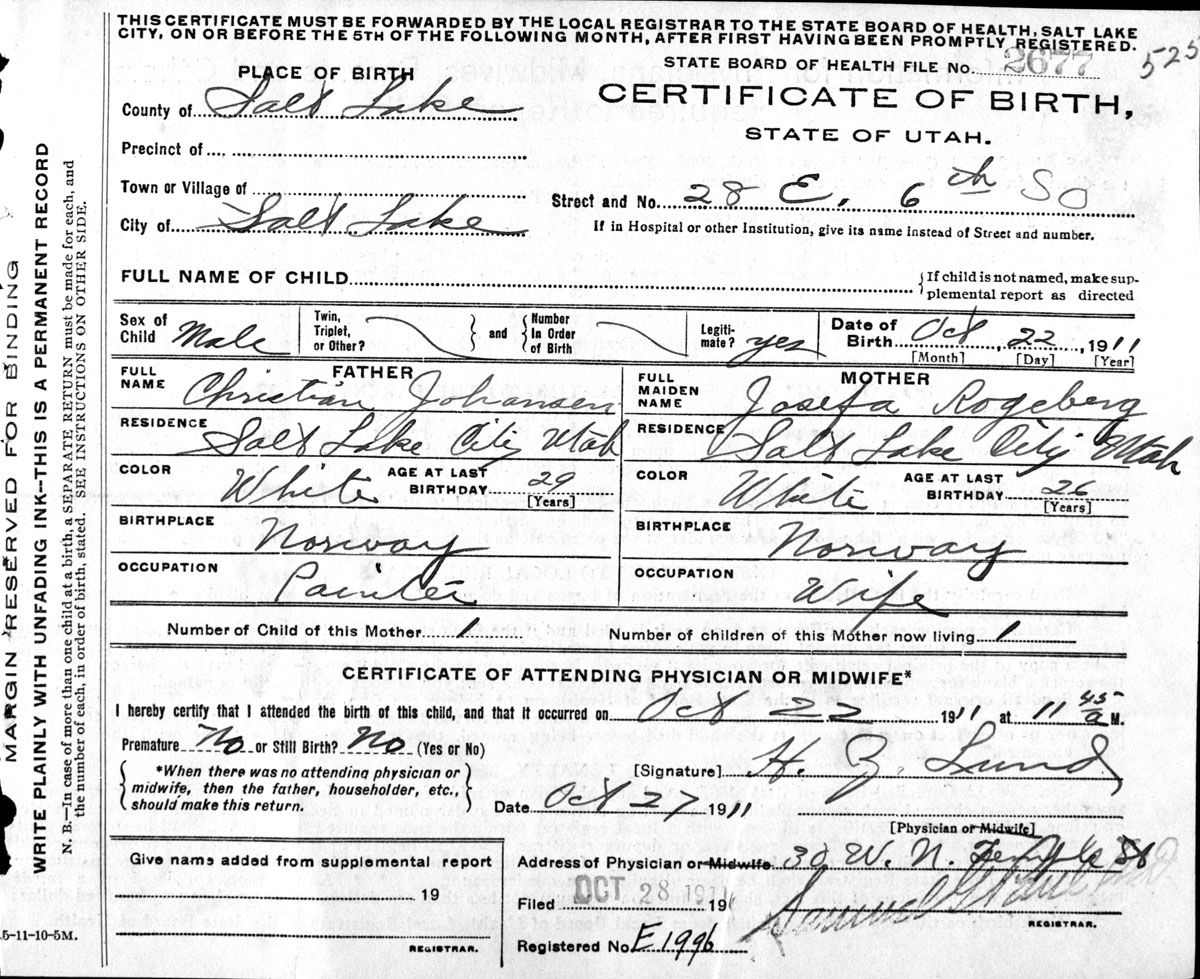 THIS CERTIFICATE MUST BE FORWARDED BY THE LOCAL REGISTRAR TO THE STATE BOARD OF HEALTH, SALT LAKE
CITY, ON OR BEFORE THE 5TH OF THE FOLLOWING MONTH, AFTER FIRST HAVING BEEN PROMPTLY REGISTERED.
STATE BOARD OF HEALTH FILE No. 2677 525
PLACE OF BIRTH
CERTIFICATE OF BIRTH,
STATE OF UTAH.
County of Salt Lake
Precinct of
Town or Village of
Street and No. 28 E. 6th So
City of Salt Lake
If in Hospital or other Institution, give its name instead of Street and number.
FULL NAME OF CHILD
{If child is not named, make sup-
plemental report as directed
Sex of Child Male
Twin, Triplet, or Other? } and { Number In Order of Birth
Legiti-mate? yes
Date of Birth Oct 22, 1911
[Month] [Day] [Year]
FATHER
FULL NAME Christian Johansen
MOTHER
FULL MAIDEN NAME Josefa Rogeberg
RESIDENCE Salt Lake City Utah
RESIDENCE Salt Lake City Utah
COLOR White AGE AT LAST BIRTHDAY 29 [Years]
COLOR White AGE AT LAST BIRTHDAY 26 [Years]
BIRTHPLACE Norway
BIRTHPLACE Norway
OCCUPATION Painter
OCCUPATION Wife
Number of Child of this Mother 1 Number of children of this Mother now living 1
CERTIFICATE OF ATTENDING PHYSICIAN OR MIDWIFE*
I hereby certify that I attended the birth of this child, and that it occurred on Oct 22 1911 at 11 45 a M.
Premature No or Still Birth? No (Yes or No)
{ *When there was no attending physician or
midwife, then the father, householder, etc.,
should make this return. }
[Signature] H. Z. Lund
Date Oct 27 1911
[Physician or Midwife]
Give name added from supplemental report
19
REGISTRAR.
Address of Physician or Midwife. 30 W. N. Temple St
Filed OCT 28 1911 191
REGISTRAR.
Registered No. E1996
5-11-10-5M.
MARGIN RESERVED FOR BINDING
WRITE PLAINLY WITH UNFADING INK—THIS IS A PERMANENT RECORD
N. B.—In case of more than one child at a birth, a SEPARATE RETURN must be made for each, and
the number of each, in order of birth, stated. SEE INSTRUCTIONS ON OTHER SIDE.